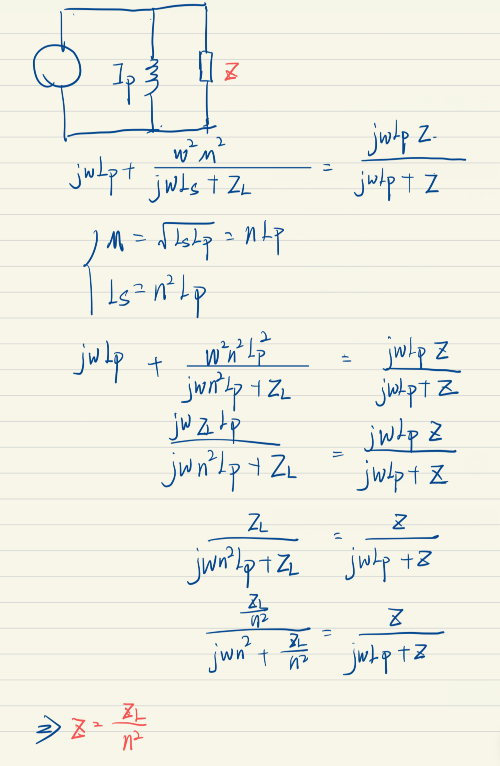 Ip Z
jwLp + w²M² / (jwLs + ZL) = jwLp Z / (jwLp + Z)
M = √(LsLp) = nLp
Ls = n²Lp
jwLp + w²n²Lp² / (jwn²Lp + ZL) = jwLp Z / (jwLp + Z)
jw ZL Lp / (jwn²Lp + ZL) = jwLp Z / (jwLp + Z)
ZL / (jwn²Lp + ZL) = Z / (jwLp + Z)
(ZL/n²) / (jwn² + ZL/n²) = Z / (jwLp + Z)
⇒ Z = ZL / n²